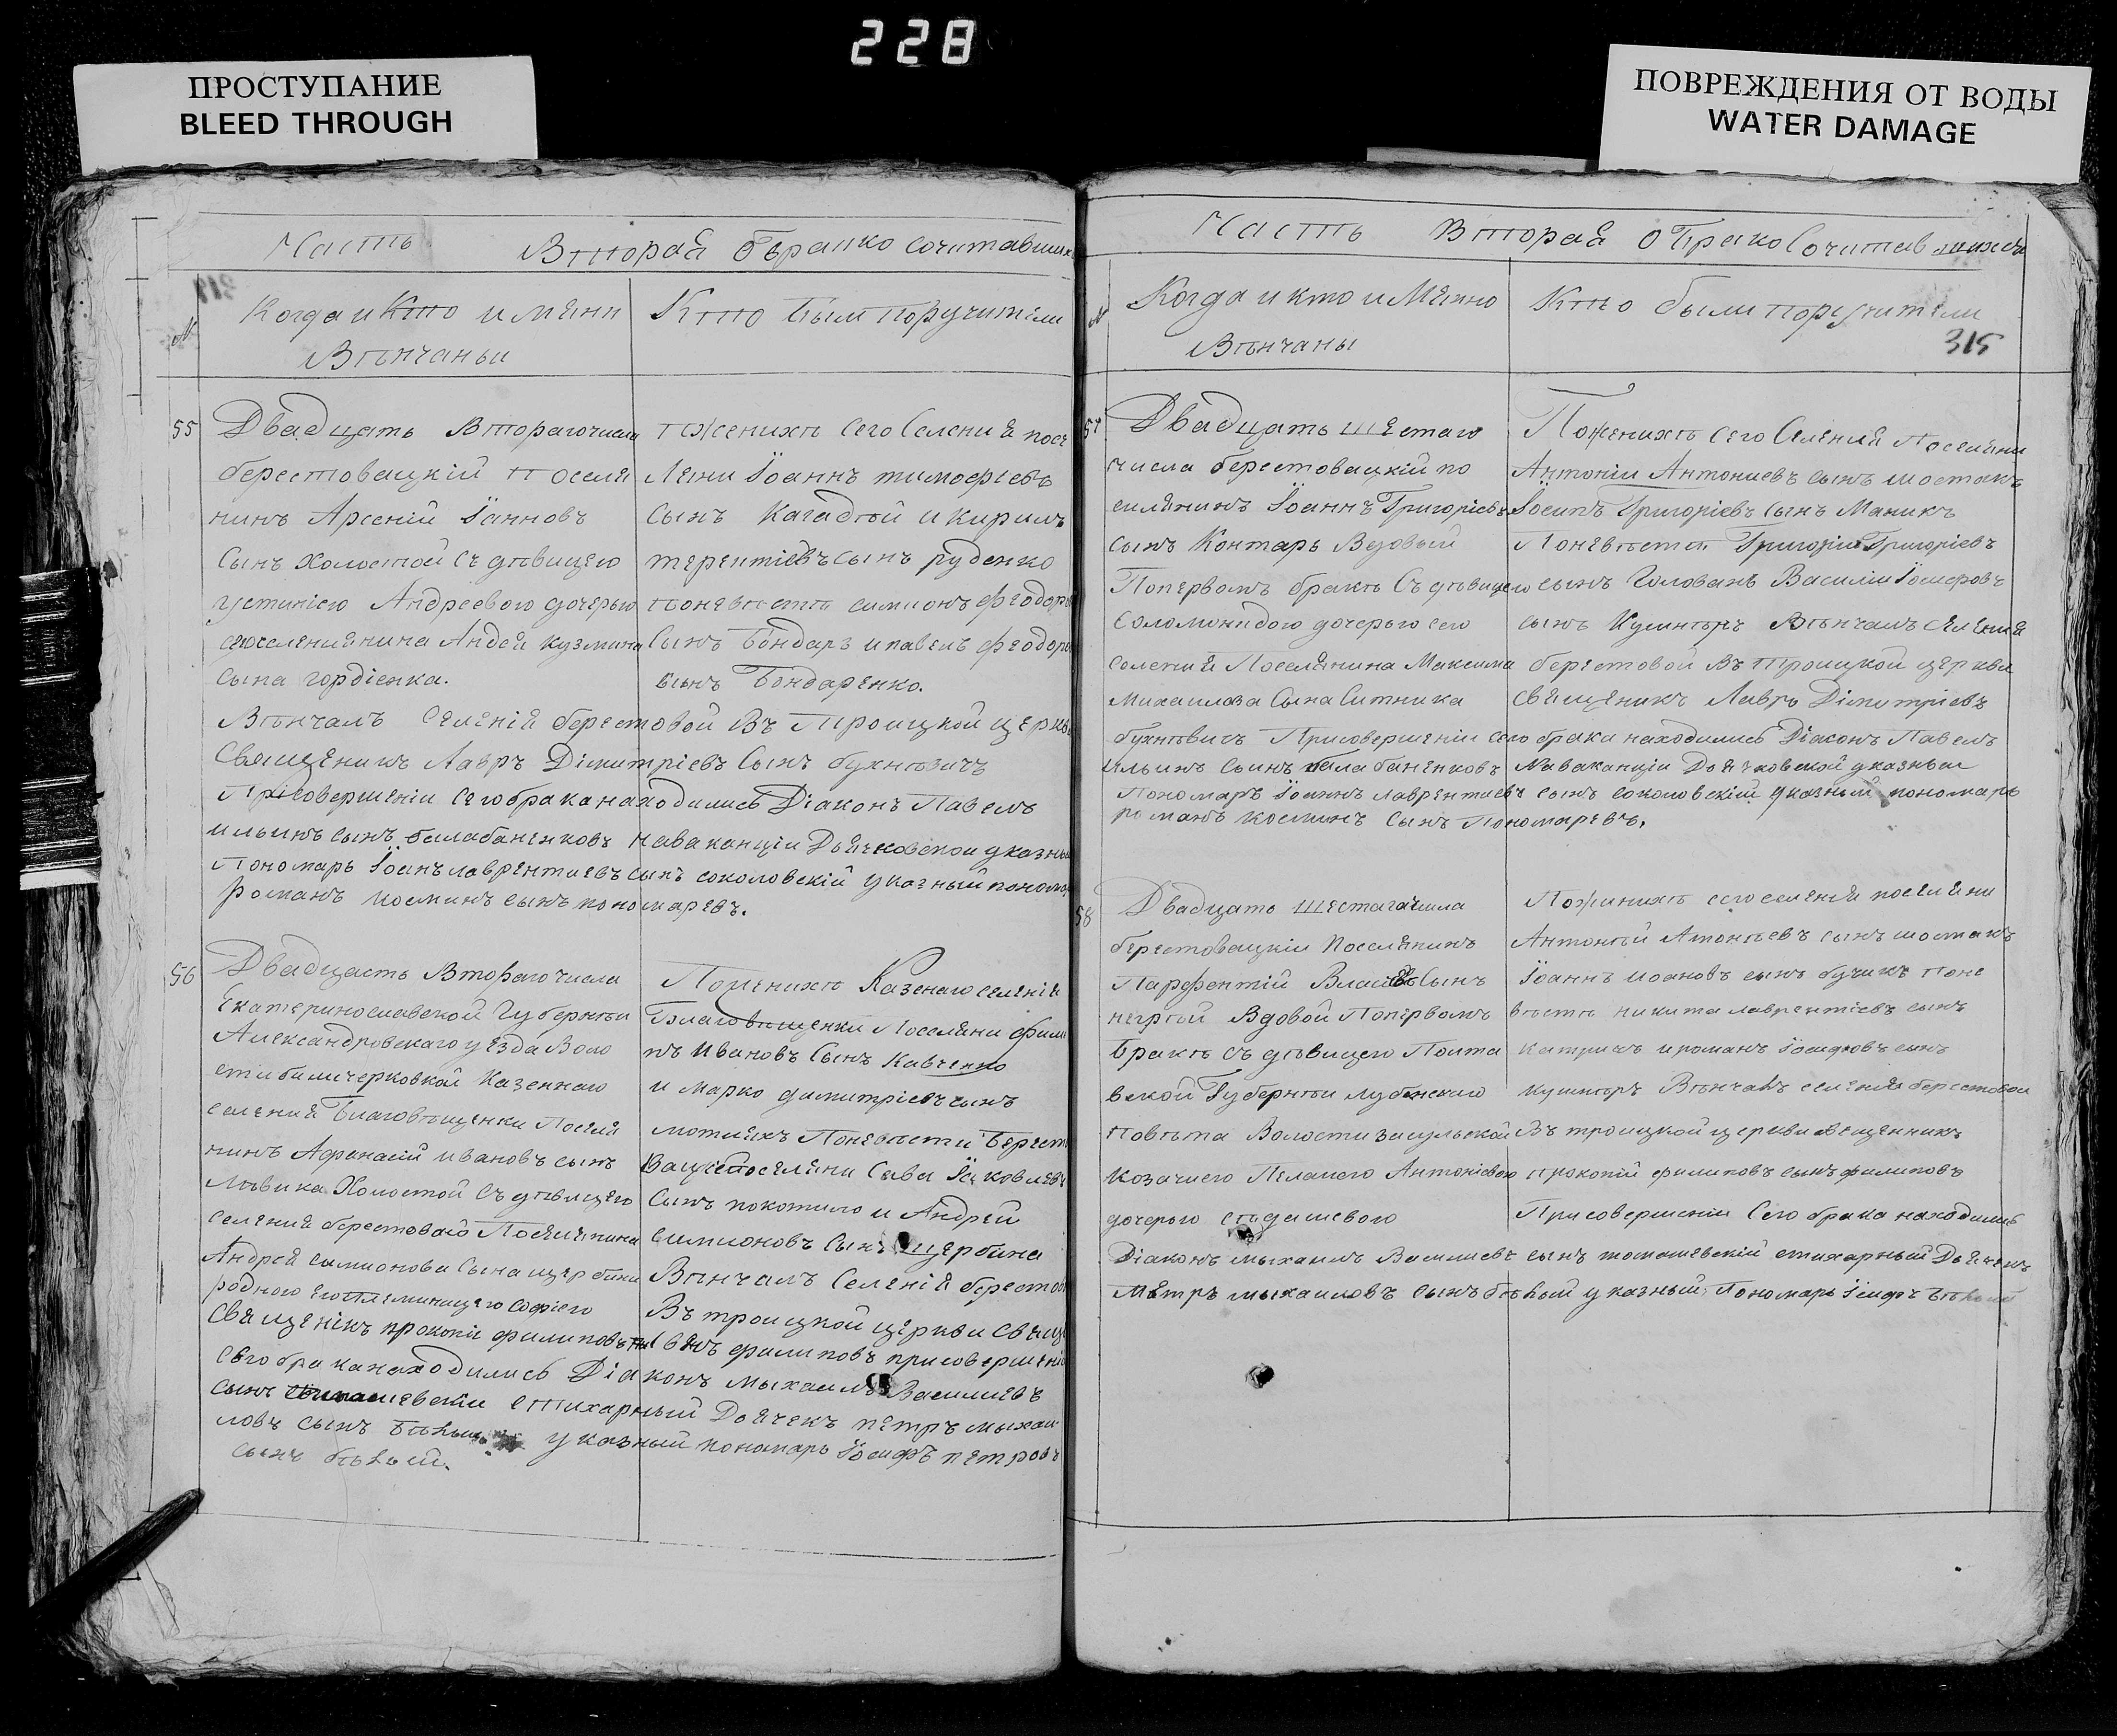 228
ПРОСТУПАНИЕ
BLEED THROUGH
ПОВРЕЖДЕНИЯ ОТ ВОДЫ
WATER DAMAGE
Часть Вторая Обърапко сочитавших
№
Когда и Кто имянн
Вѣнчаньи
Кто были поручители
55
Двадцать Вторагочисла
берестовацкій поселя
нинъ Арсеній Іанновъ
Сынъ Холостой Съ дѣвицею
устиніею Андреевою дочерью
Андей кузмина
Сына гордіенка.
пожениху сего Селенія посе
ляни Іоаннъ тимофіевъ
Сынъ Кагадѣй и кирилъ
терентіевъ сынъ руденко
поневѣсте симионъ феодоро
Сынъ бондарь и павелъ феодоро
сынъ Бондаренко.
Вѣнчалъ Селенія берестовой Въ Троицкой церкв
Священикъ Лавръ Дімитріевъ Сынъ бухнѣвичъ
Присовершеніи сего брака находились Діаконъ Павелъ
ильинъ сынъ балабаненковъ На ваканціи Дьячковской указны
Пономарь Іоанъ лаврентиевъ сынъ соколовскій указный пономар
романъ косминъ сынъ пономаревъ.
56
Двадцать Втораго числа
Екатеринославской Губерніи
Александровскаго уезда Воло
сти биличерковкой Казеннаго
селения Благовѣщенки Поселя
нинъ Афанасій ивановъ сынъ
Холостой Съ дѣвицею
селения берестоваго Поселянина
Андрей симионова Сына щербини
родною его племиницею софіею
Пожениху Казенаго селенія
Благовещенки Поселяни фили
пъ Ивановъ Сынъ Кавченко
и марко димитріевъ сынъ
Поневѣсти Берест
вацкіе поселяни Сава Іаковлевъ
Сынъ покотило и Андрей
симионовъ Сынъ щербина
Вѣнчалъ Селенія берестов
Въ троицкой церкви свящ
священікъ прокопіе филиповъ сынъ филиповъ присовершеніи
сего брака находились Діаконъ мыхаилъ Василиевъ
сынъ стихарный Дьячекъ петръ мыхаи
ловъ сынъ бѣлый указный пономарь Іосифъ петровъ
сынъ бѣлый.
Часть Вторая О Брако Сочитавшихся
№
Когда и кто имянно
Вѣнчаны
Кто были поручители
315
57
Двадцать шестаго
числа берестовацкій по
силянинъ Іоаннъ Григоріевъ
сынъ Контарь Вдовый
Попервомъ бракѣ Съ дѣвицею
Соломонидою дочерью сего
селения Поселянина Максима
Михаилова Сына Ситника
Пожениху сего Селения Поселяни
Антоніи Антониевъ сынъ шостакъ
Іосипъ Григоріевъ Сынъ Маникъ
Поневѣсте Григоріи Григоріевъ
сынъ Голованъ Василіи Іосифовъ
сынъ Кушниръ Вѣнчалъ Селения
берестовой Въ Троицкой церкви
Священикъ Лавръ Дімитріевъ
бухнѣвичъ Присовершеніи сего брака находились Діаконъ Павелъ
Ильинъ сынъ балабаненковъ На ваканціи Дьячковской указныи
Пономарь Іоаннъ лаврентиевъ сынъ соколовскій указный пономарь
романъ косминъ сынъ Пономаревъ.
58
Двадцать шестагачисла
берестовацкіи Поселянинъ
Парфентій Власіевъ Сынъ
Вдовой Попервомъ
бракѣ съ дѣвицею Полта
вской Губерніи лубенскаго
повѣта Волости засульской
Козачкою Пелагею Антоніевою
дочерью
Пожениху сего селения поселяни
Антонѣй Атонѣевъ сынъ шостакъ
Іоаннъ иоановъ сынъ бучикъ поне
вѣсте никита лаврентіевъ сынъ
и романъ Іосифовъ сынъ
кушниръ Вѣнчалъ селения берестовои
Въ троицкой церкви священникъ
прокопій филиповъ сынъ филиповъ
Присовершении Сего брака находились
Діаконъ мыхаилъ Василиевъ сынъ томашевскій стихарный Дьячекъ
Петръ мыхаиловъ сынъ бѣлый указный Пономарь Іосифъ бѣлый